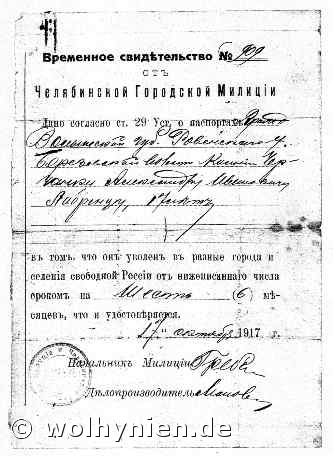 Временное свидѣтельство № 909
отъ
Челябинской Городской Милиціи
Дано согласно ст. 29 Уст. о паспортахъ
Волынской губ. Ровенскаго у.
Александру Ивановичу
въ томъ, что онъ уволенъ въ разные города и
селенія свободной Россіи отъ нижеписаннаго числа
срокомъ на Шесть (6) мѣ-
сяцевъ, что и удостовѣряется.
17 октября 1917 г.
Начальник Милиціи
Дѣлопроизводитель
© www.wolhynien.de ©